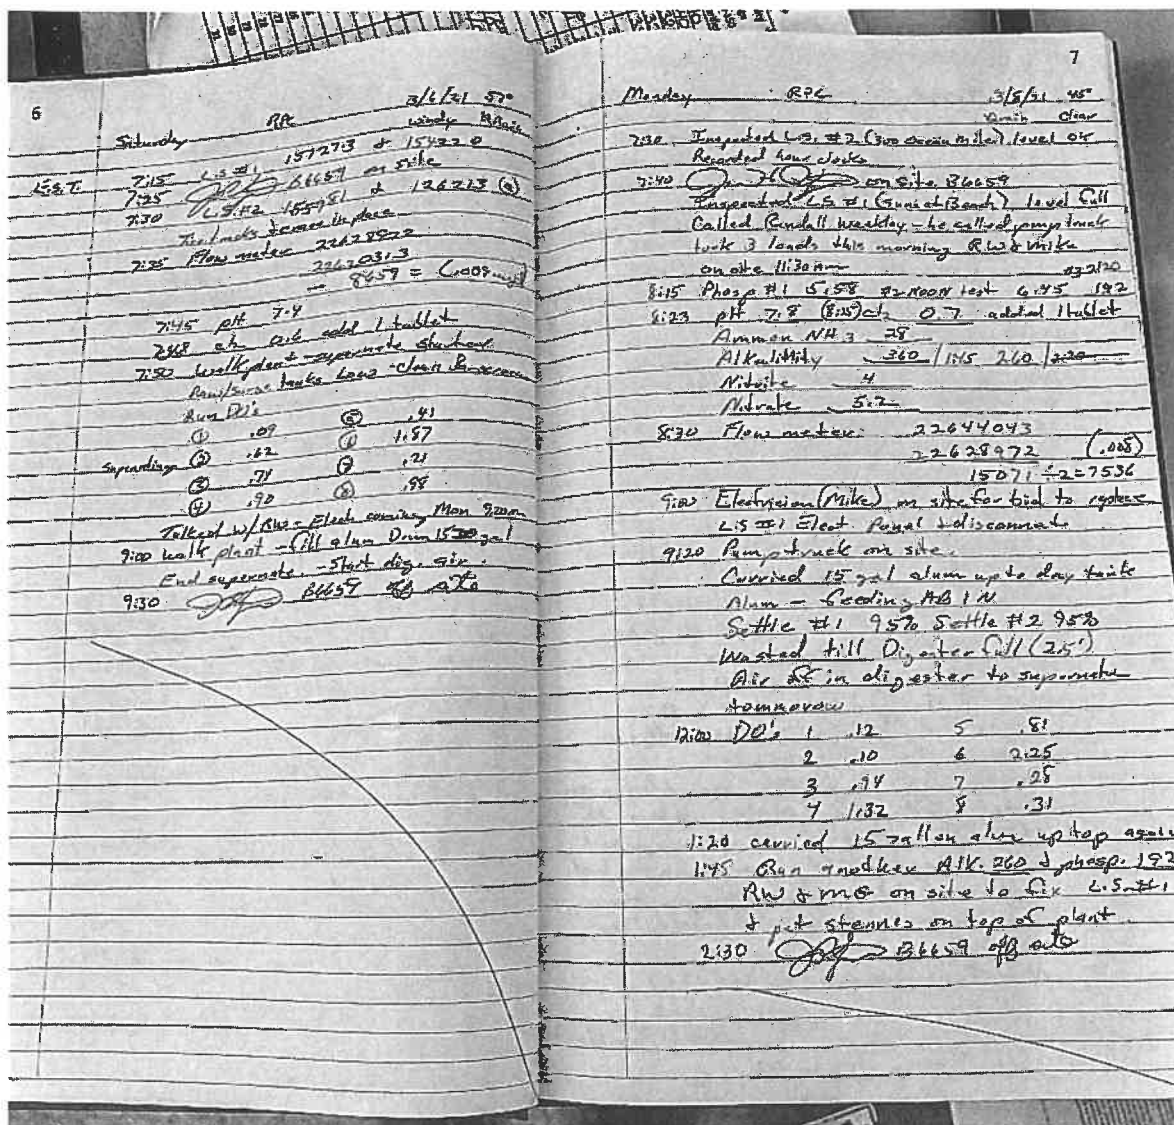 6
3/6/21 57°
Saturday RPC windy
7:15 L.S #1 157273 & 154320
7:25 B6659 on site
7:30 L.S. #2 & 126213
in place
7:35 Flow meter 22628972
22620313
8659 =
7:45 pH 7.4
0.6 add 1 tablet
7:50 walk plant - supernate
Run DO's
① .09 ⑤ .41
② .62 ⑥ 1.87
③ .71 ⑦ .21
④ .90 ⑧ .98
Talked w/ RW - Elect. coming Mon 9:00am
9:00 walk plant - fill alum Drum 15 gal
End supernate. - Start dig. air.
9:30 B6659 off site
7
Monday RPC 3/8/21 45°
Clear
7:30 Inspected L.S. #2 (300 Ocean Miles) level ok
Recorded hour clocks
7:40 on site B6659
Inspected L.S #1 (Beach), level full
Called Randall Weekley - he called pump truck
took 3 loads this morning RW & Mike
on site 11:30am
8:15 Phosp #1 5.58 #2 NOON test 6.45 192
8:23 pH 7.8 (8:25) cl2 0.7 added 1 tablet
Ammon NH3 28
Alkalinity 360 / 1:45 260 /
Nitrite 4
Nitrate 5.2
8:30 Flow meter: 22644043
22628972 (.008)
15071 ÷ 2 = 7536
9:00 Electrician (Mike) on site for bid to replace
L.S #1 Elect Panel & disconnect
9:20 Pump truck on site.
Carried 15 gal alum up to day tank
Alum - feeding AB 1 N
Settle #1 95% Settle #2 95%
Wasted till Digester full (2.5')
Air off in digester to supernate
tommorow
12:00 DO's 1 .12 5 .81
2 .10 6 2.25
3 .94 7 .28
4 1.32 8 .31
1:20 carried 15 gallon alum up top again
1:45 Ran another Alk. 260 & phosp. 192
RW & MG on site to fix L.S. #1
& put stennes on top of plant.
2:30 B6659 off site